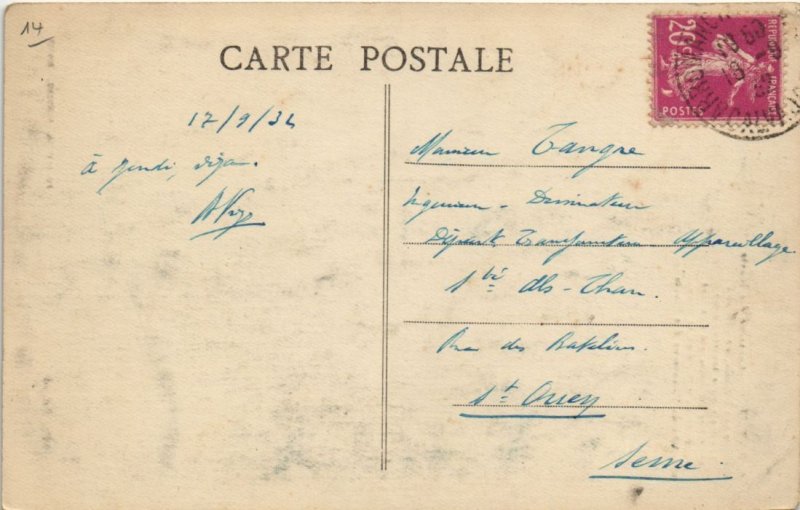 14
CARTE POSTALE
20c
REPUBLIQUE FRANÇAISE
POSTES
17/9/34
à jeudi,
Monsieur Tangre
Ingénieur - Dessinateur
Départ Transformateur Appareillage
Sté Als-Than.
Rue des
St Ouen
Seine